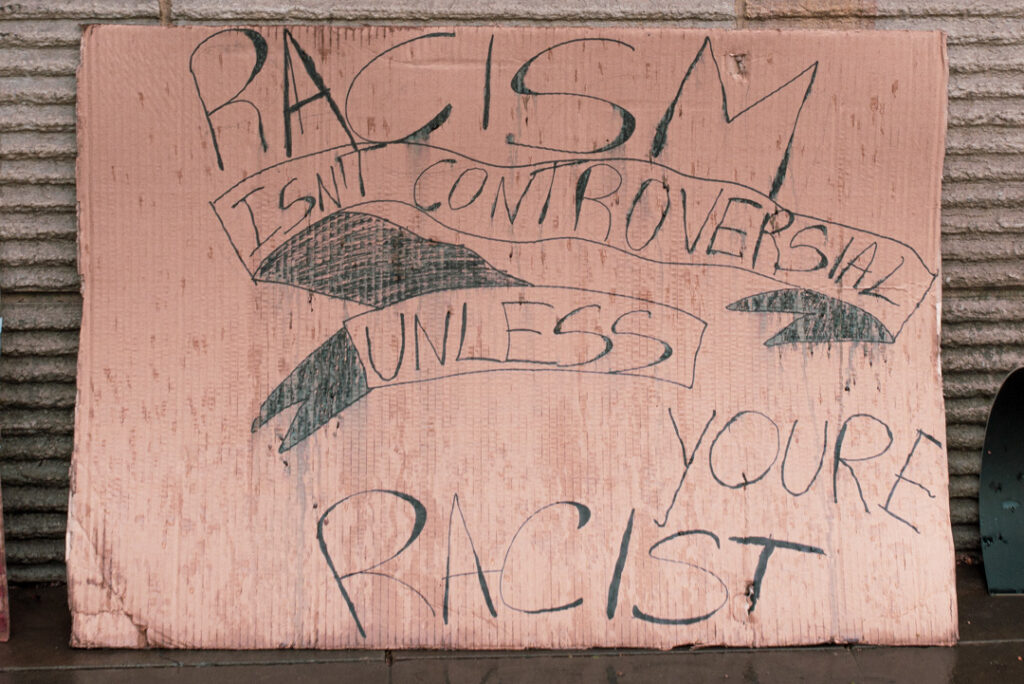 RACISM
ISN'T CONTROVERSIAL
UNLESS
YOURE
RACIST